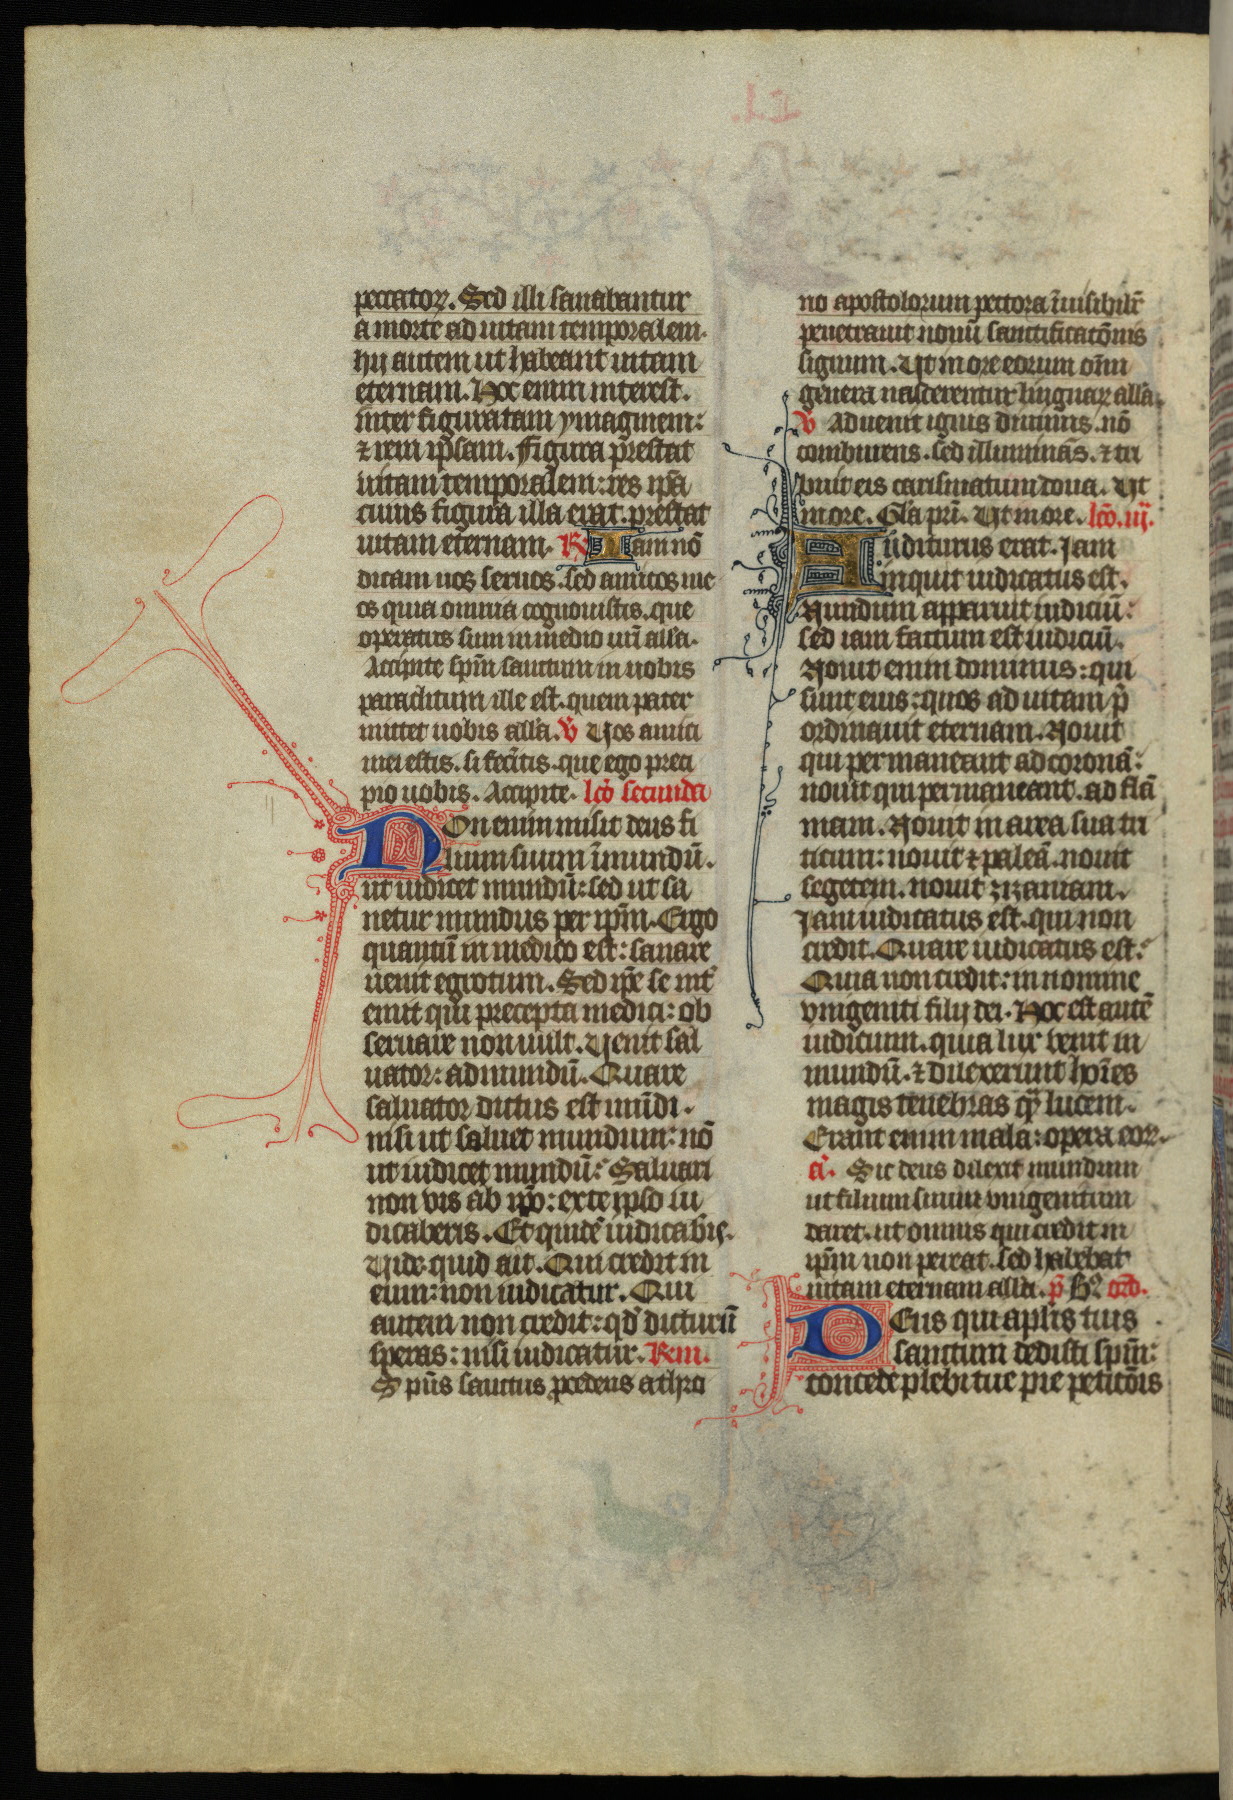 peccatoꝝ. Sed illi sanabantur
a morte ad uitam temporalem.
hij autem ut habeant uitam
eternam. Hoc enim interest.
inter figuratam ymaginem:
⁊ rem ip̄sam. Figura prestat
uitam temporalem: res ip̄a
cuius figura illa erat. prestat
uitam eternam. R̄ Iam nō
dicam uos seruos. sed amicos me
os quia omnia cognouistis. que
operatus sum in medio ur̄i all̄a.
Accipite sp̄m sanctum in uobis
paraclitum ille est. quem pater
mittet uobis all̄a. V̄ Uos amici
mei estis. si fec̄itis. que ego preci
pio uobis. Accipite. lc̄o secunda
Non enim misit deus fi
lium suum ī mundū.
ut iudicet mundū: sed ut sa
netur mundus per ip̄m. Ergo
quantū in medico est: sanare
uenit egrotum. Sed ip̄e se int̄
emit qui precepta medici: ob
seruare non uult. Uenit sal
uator: ad mundū. Quare
saluator dictus est mūdi.
nisi ut saluet mundum: nō
ut iudicet mundū: Saluari
non vis ab ip̄o: ex te ipso iu
dicaberis. Et quidē iudicab̄is.
Uide quid ait. Qui credit in
eum: non iudicatur. Qui
autem non credit: qd̄ dicturū
speras: nisi iudicatur. R̄. iii.
Spūs sanctus p̄cedens a thro
no apostolorum pectora īuisibilit̄
penetrauit nouū sanctificatōnis
signum. Ut in ore eorum om̄i
genera nascerentur linguaꝝ all̄a.
V̄ Aduenit ignis diuinus. nō
comburens. sed illuminās. ⁊ tri
buit eis carismatum dona. Ut
in ore. Gl̄a pr̄i. Ut in ore. lc̄o. iij.
Auditurus erat. Iam
inquit iudicatus est.
Nundum apparuit iudiciū:
sed iam factum est iudiciū.
Nouit enim dominus: qui
sunt eius: quos ad uitam p̄
ordinauit eternam. Nouit
qui permaneant ad coronā:
nouit qui permaneant. ad flā
mam. Nouit in area sua tri
ticum: nouit ⁊ paleā. nouit
segetem. nouit zizaniam.
Iam iudicatus est. qui non
credit. Quare iudicatus est:
Quia non credit: in nomine
vnigeniti filij dei. Hoc est autē
iudicium. quia lux venit in
mundū. ⁊ dilexerunt hoīes
magis tenebras q̄ lucem.
Erant enim mala: opera eoꝝ.
a͞. Sic deus dilexit mundum
ut filium suum vnigenitum
daret. ut omnis qui credit in
ip̄m non pereat. sed habebat
uitam eternam all̄a. p̄ h̄o. ord̄.
Deus qui apl̄is tuis
sanctum dedisti sp̄m:
concede plebi tue pie petitōis